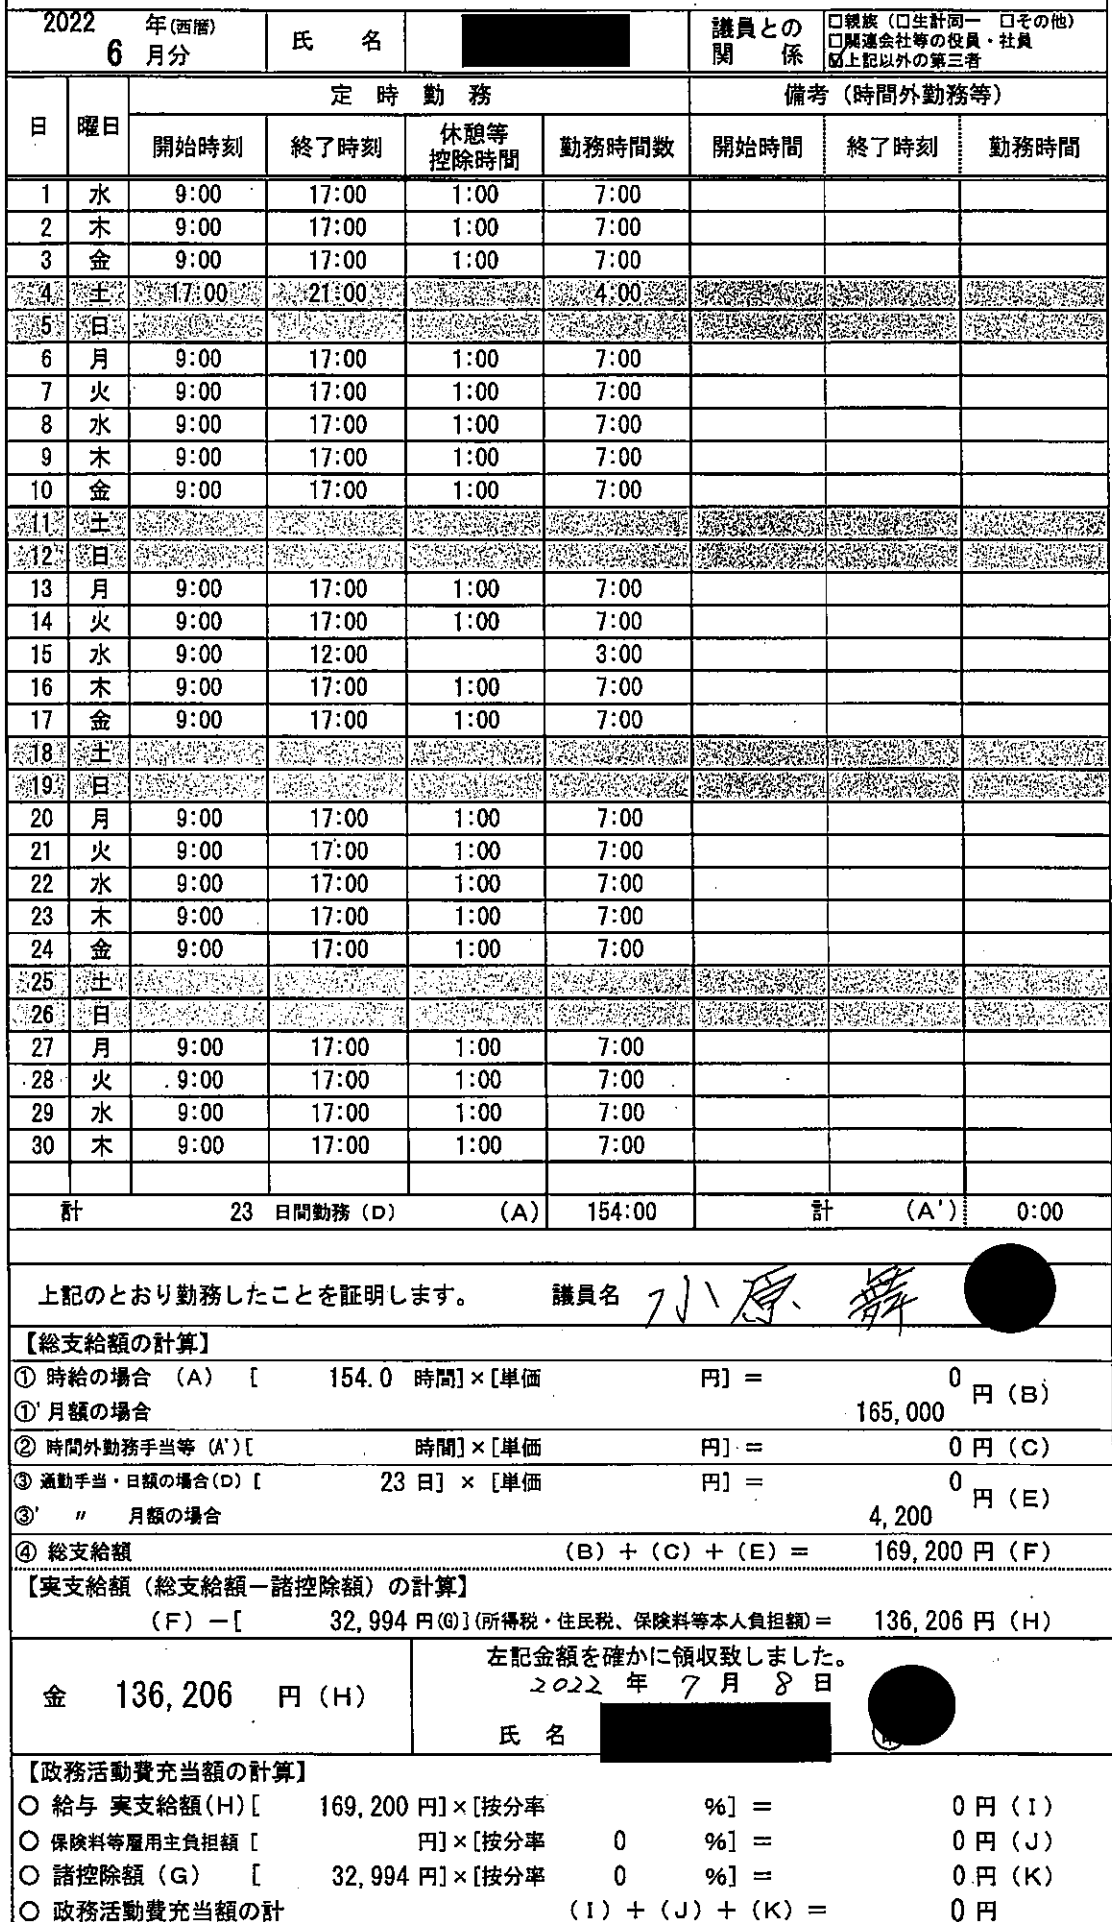 2022 年(西暦) 氏 名 議員との 関 係 □親族（□生計同一 □その他）
6 月分 □関連会社等の役員・社員
☑上記以外の第三者
日 曜日 定 時 勤 務 備考（時間外勤務等）
開始時刻 終了時刻 休憩等控除時間 勤務時間数 開始時間 終了時刻 勤務時間
1 水 9:00 17:00 1:00 7:00
2 木 9:00 17:00 1:00 7:00
3 金 9:00 17:00 1:00 7:00
4 土 17:00 21:00 4:00
5 日
6 月 9:00 17:00 1:00 7:00
7 火 9:00 17:00 1:00 7:00
8 水 9:00 17:00 1:00 7:00
9 木 9:00 17:00 1:00 7:00
10 金 9:00 17:00 1:00 7:00
11 土
12 日
13 月 9:00 17:00 1:00 7:00
14 火 9:00 17:00 1:00 7:00
15 水 9:00 12:00 3:00
16 木 9:00 17:00 1:00 7:00
17 金 9:00 17:00 1:00 7:00
18 土
19 日
20 月 9:00 17:00 1:00 7:00
21 火 9:00 17:00 1:00 7:00
22 水 9:00 17:00 1:00 7:00
23 木 9:00 17:00 1:00 7:00
24 金 9:00 17:00 1:00 7:00
25 土
26 日
27 月 9:00 17:00 1:00 7:00
28 火 9:00 17:00 1:00 7:00
29 水 9:00 17:00 1:00 7:00
30 木 9:00 17:00 1:00 7:00
計 23 日間勤務（D） (A) 154:00 計 (A') 0:00
上記のとおり勤務したことを証明します。 議員名 小原 舞
【総支給額の計算】
① 時給の場合 （A） [ 154.0 時間]×[単価 円] ＝ 0 円（B）
①'月額の場合 165,000
② 時間外勤務手当等 (A')[ 時間]×[単価 円] ＝ 0 円（C）
③ 通勤手当・日額の場合(D) [ 23 日] × [単価 円] ＝ 0 円（E）
③' 〃 月額の場合 4,200
④ 総支給額 (B) ＋ (C) ＋ (E) ＝ 169,200 円（F）
【実支給額（総支給額－諸控除額）の計算】
(F) －[ 32,994 円(G)](所得税・住民税、保険料等本人負担額)＝ 136,206 円（H）
金 136,206 円（H） 左記金額を確かに領収致しました。
2022 年 7 月 8 日
氏 名
【政務活動費充当額の計算】
○ 給与 実支給額(H)[ 169,200 円]×[按分率 %] ＝ 0 円（I）
○ 保険料等雇用主負担額 [ 円]×[按分率 0 %] ＝ 0 円（J）
○ 諸控除額（G） [ 32,994 円]×[按分率 0 %] ＝ 0 円（K）
○ 政務活動費充当額の計 (I) ＋ (J) ＋ (K) ＝ 0 円